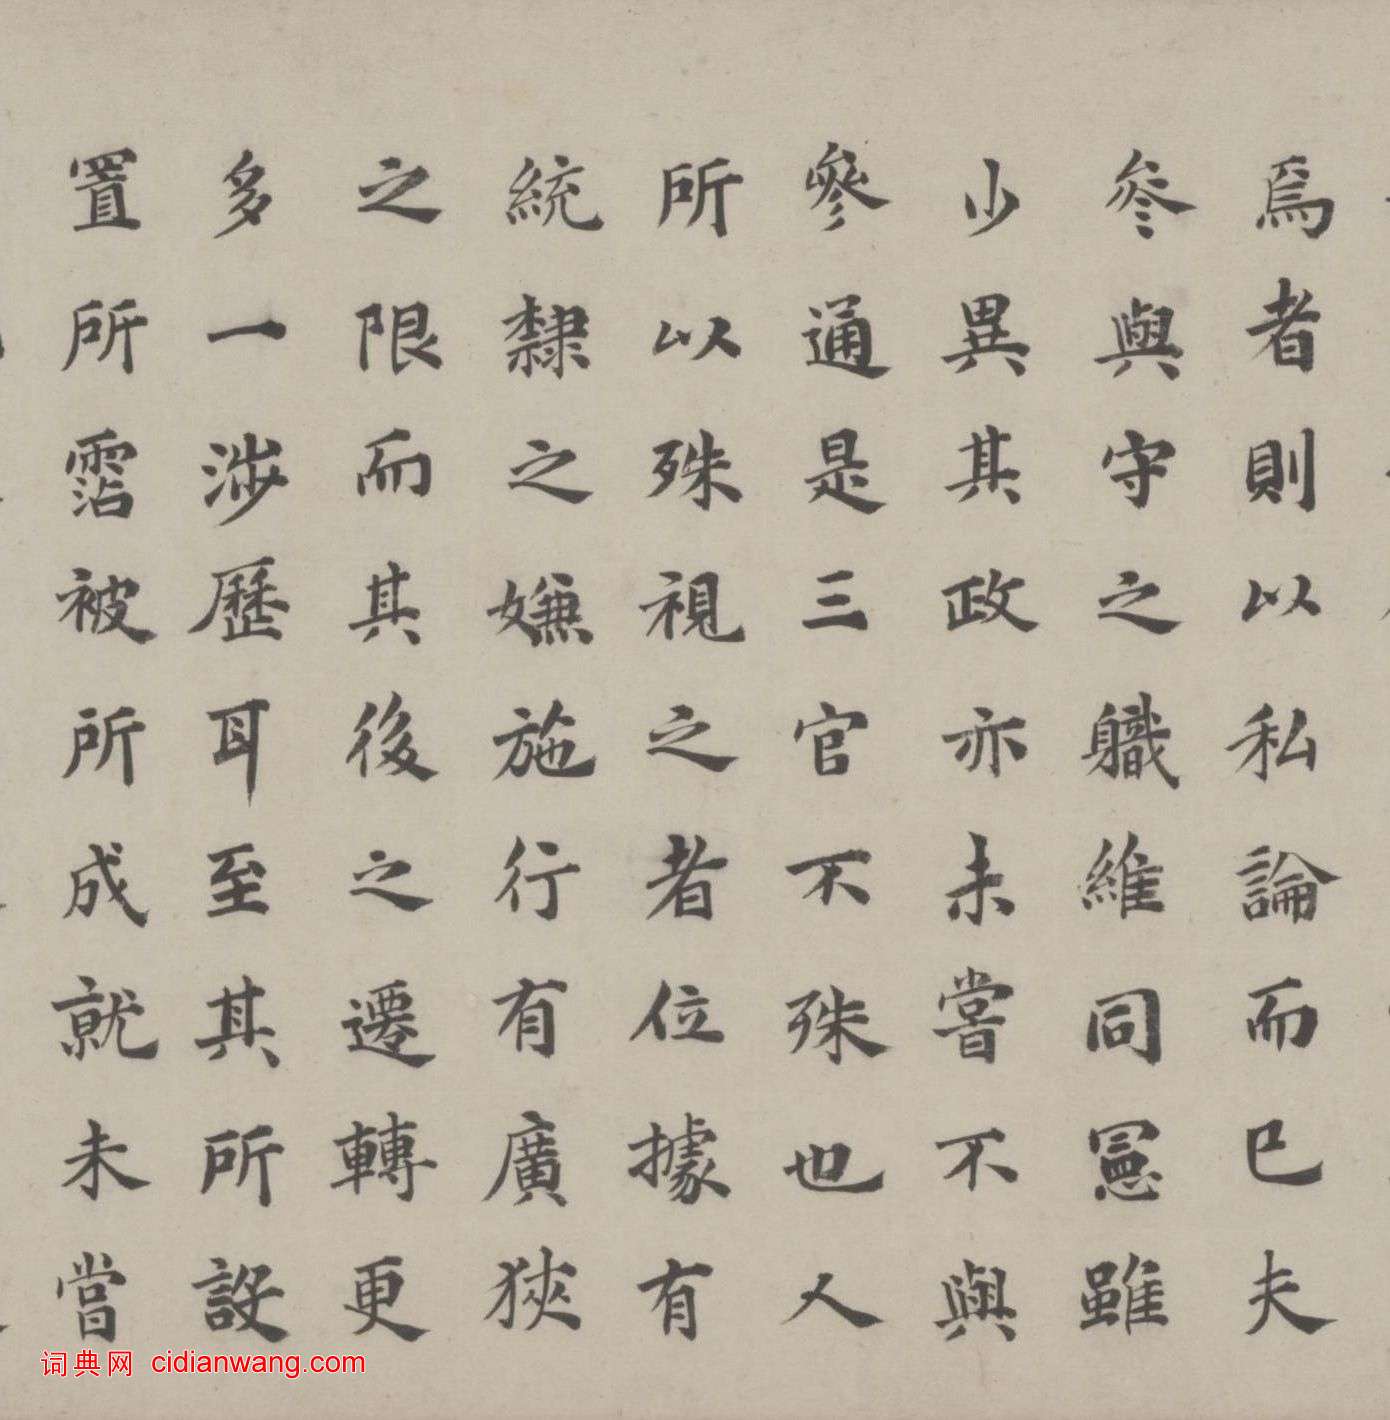 爲者則以私論而已夫
叅與守之職維同憲雖
少異其政亦未嘗不與
參通是三官不殊也人
所以殊視之者位據有
統隸之嫌施行有廣狹
之限而其後之遷轉更
多一涉歷耳至其所設
置所霑被所成就未嘗
词典网 cidianwang.com